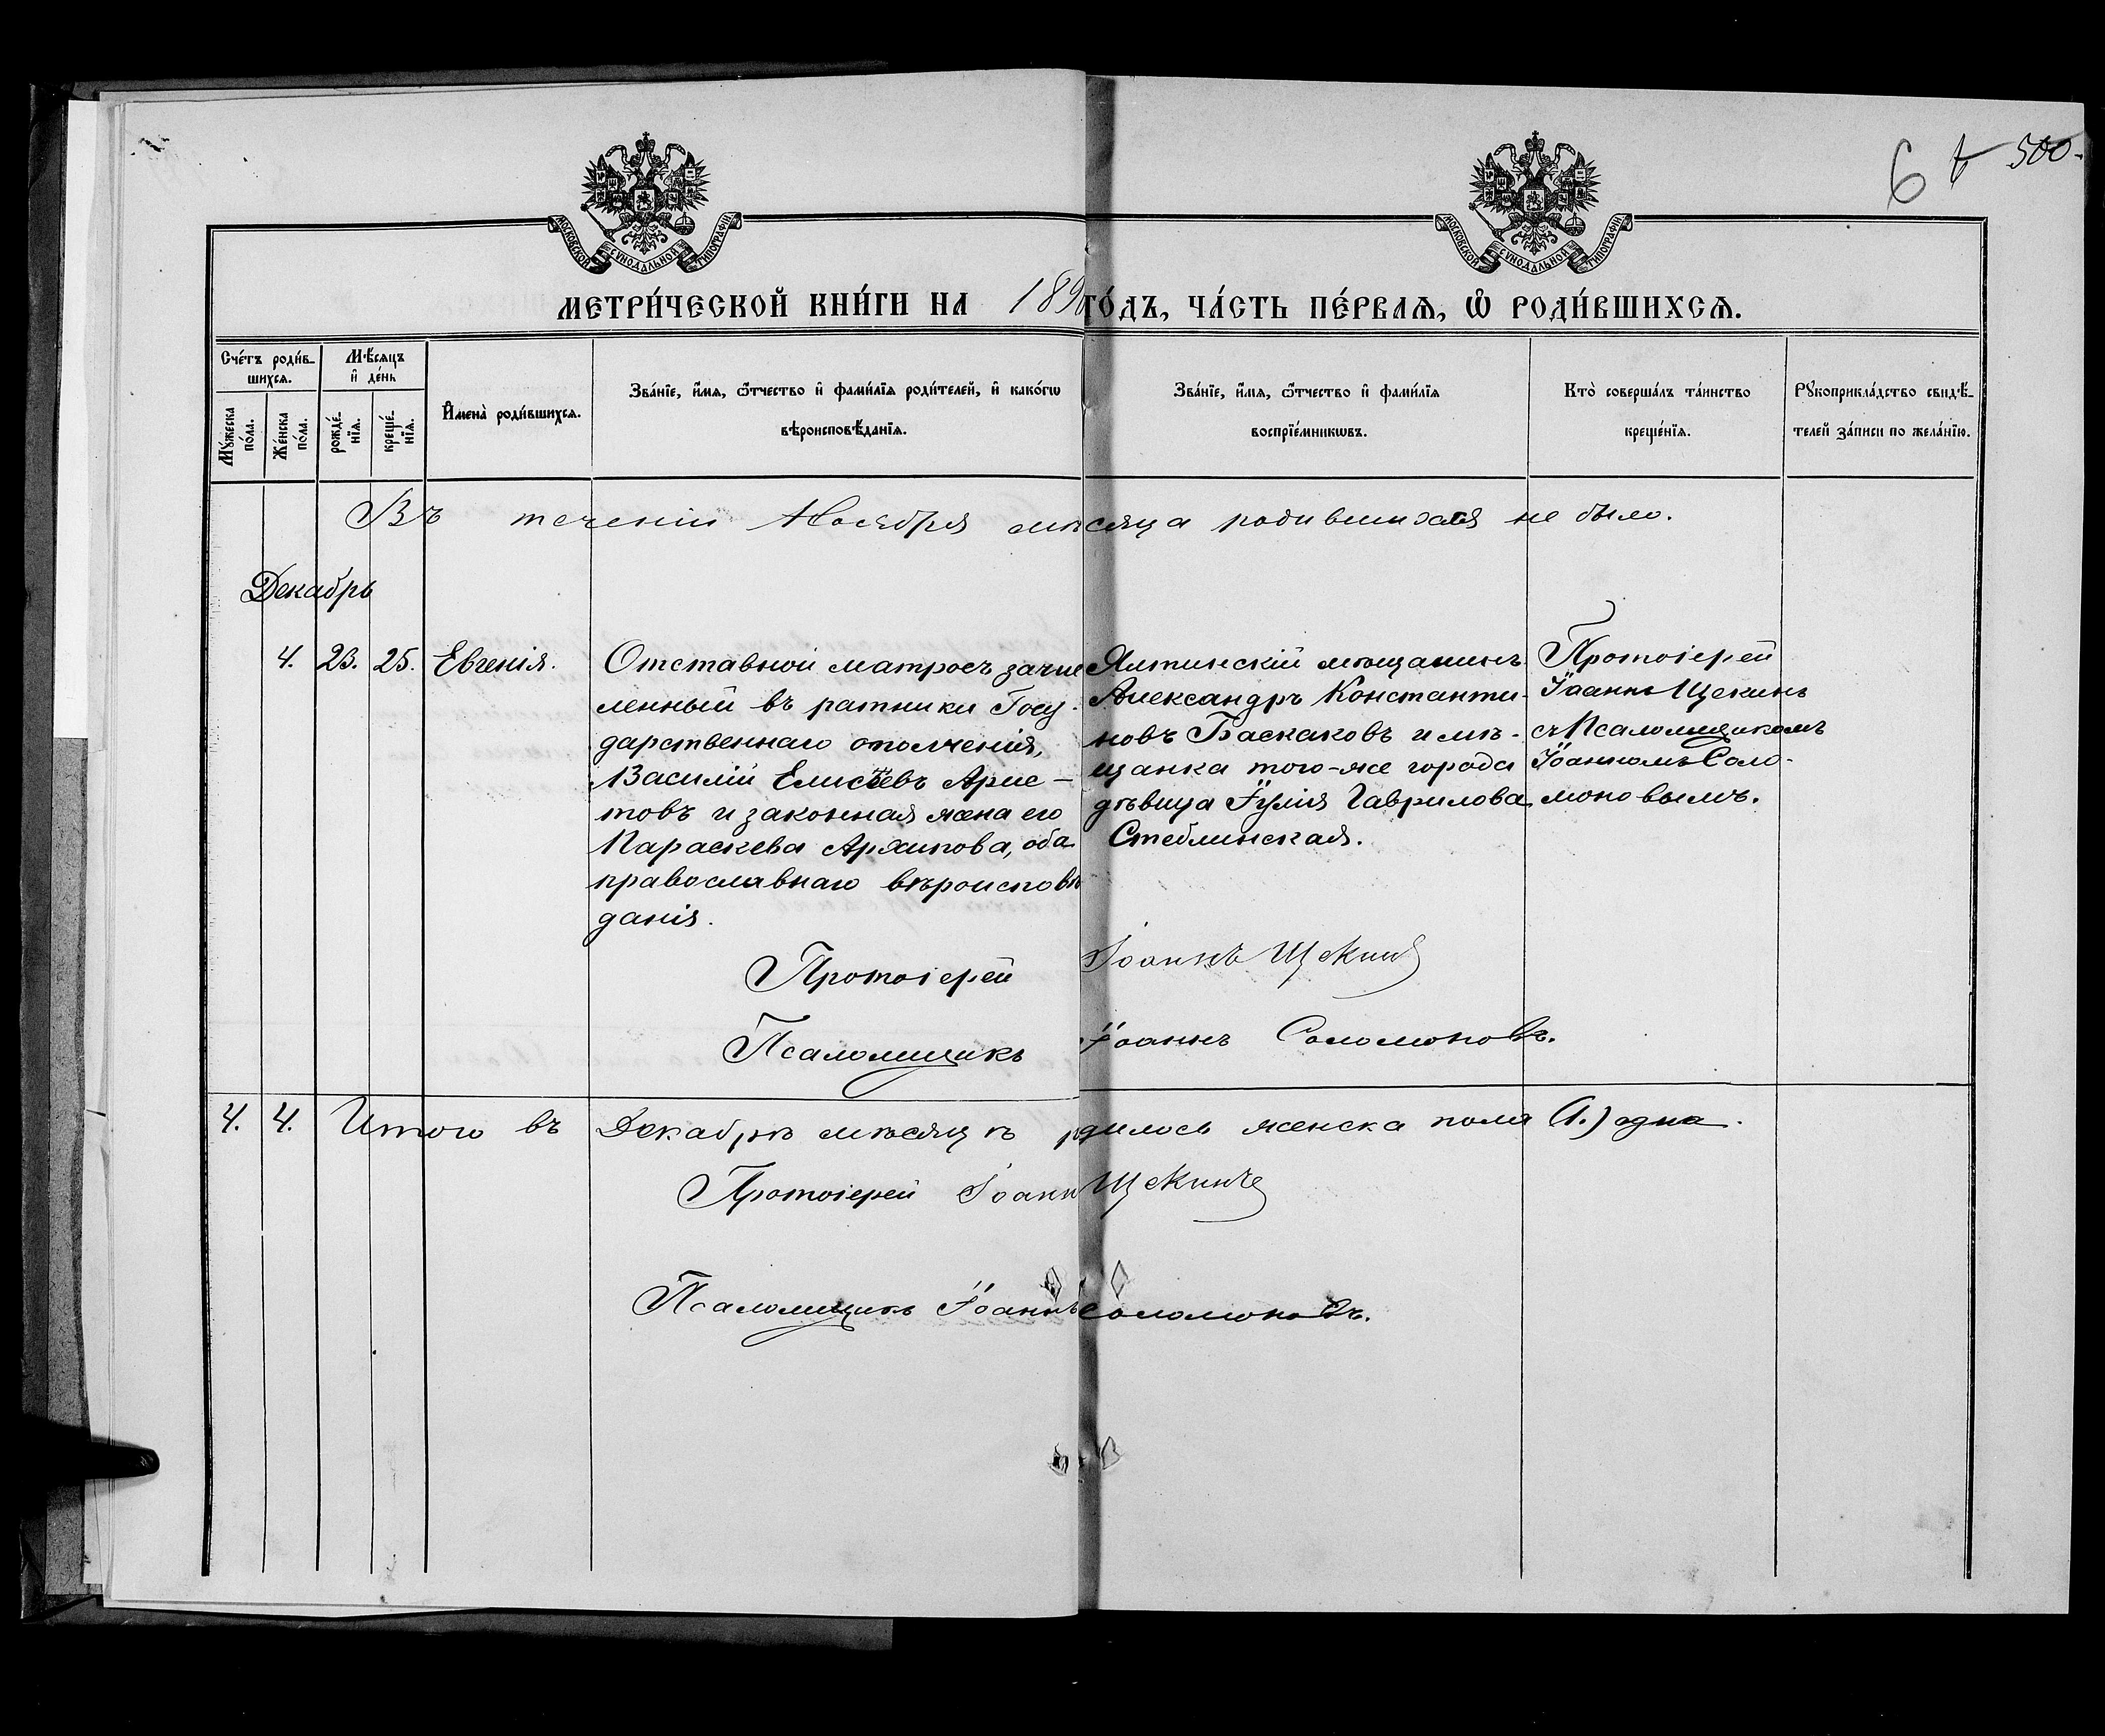 6 500.
МОСКОВСКОЙ СѴНОДАЛЬНОЙ ТИПОГРАФІИ
МОСКОВСКОЙ СѴНОДАЛЬНОЙ ТИПОГРАФІИ
МЕТРИ́ЧЕСКОЙ КНИ́ГИ НА 189 ГО́ДЪ, ЧА́СТЬ ПЕ́РВАѦ, Ѽ РОДИ́ВШИХСѦ.
Сче́тъ роди́в-
шихсѧ.
Мꙋ́жеска
по́ла.
Же́нска
по́ла.
Мѣ́сѧцъ
и҆ де́нь
рожде́-
нїѧ.
креще́-
нїѧ.
И҆мена̀ роди́вшихсѧ.
Зва́нїе, и҆́мѧ, ѻ҆́тчество и҆ фами́лїѧ роди́телей, и҆ како́гѡ
вѣроисповѣ́данїѧ.
Зва́нїе, и҆́мѧ, ѻ҆́тчество и҆ фами́лїѧ
воспрїе́мникѡвъ.
Кто̀ соверша́лъ та́инство
креще́нїѧ.
Рꙋкоприкла́дство свидѣ́-
телей за́писи по жела́нїю.
Въ теченіи Ноября мѣсяца родившихся не было.
Декабрь
4. 23. 25. Евгенія.
Отставной матросъ зачис
ленный въ ратники Госу-
дарственнаго ополченія,
Василій Елисѣевъ Арис-
товъ и законная жена его
Параскева Архипова, оба
православнаго вѣроисповѣ
данія.
Ялтинскій мѣщанинъ
Александръ Константи-
новъ Баскаковъ и мѣ-
щанка того-же города
дѣвица Іулія Гаврилова
Стеблинская.
Протоіерей
Іоаннъ Щекинъ
съ Псаломщикомъ
Іоанномъ Соло-
моновымъ.
Протоіерей Іоаннъ Щекинъ
Псаломщикъ Іоаннъ Соломоновъ.
4. 4. Итого въ Декабрѣ мѣсяцѣ родилось женска пола (1.) одна.
Протоіерей Іоанн Щекинъ
Псаломщикъ Іоаннъ Соломоновъ.